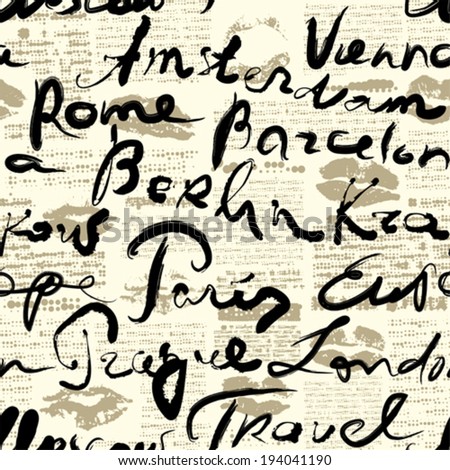 Moscow
Amsterdam Vienna
a Rome Barcelon
a Berlin Kra
kow Paris
ope Euro
n Prague London
Moscow Travel
shutterstock
www.shutterstock.com · 194041190